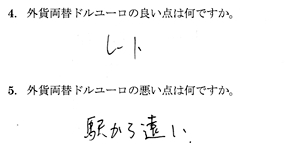 4. 外貨両替ドルユーロの良い点は何ですか。
レート
5. 外貨両替ドルユーロの悪い点は何ですか。
駅から遠い.